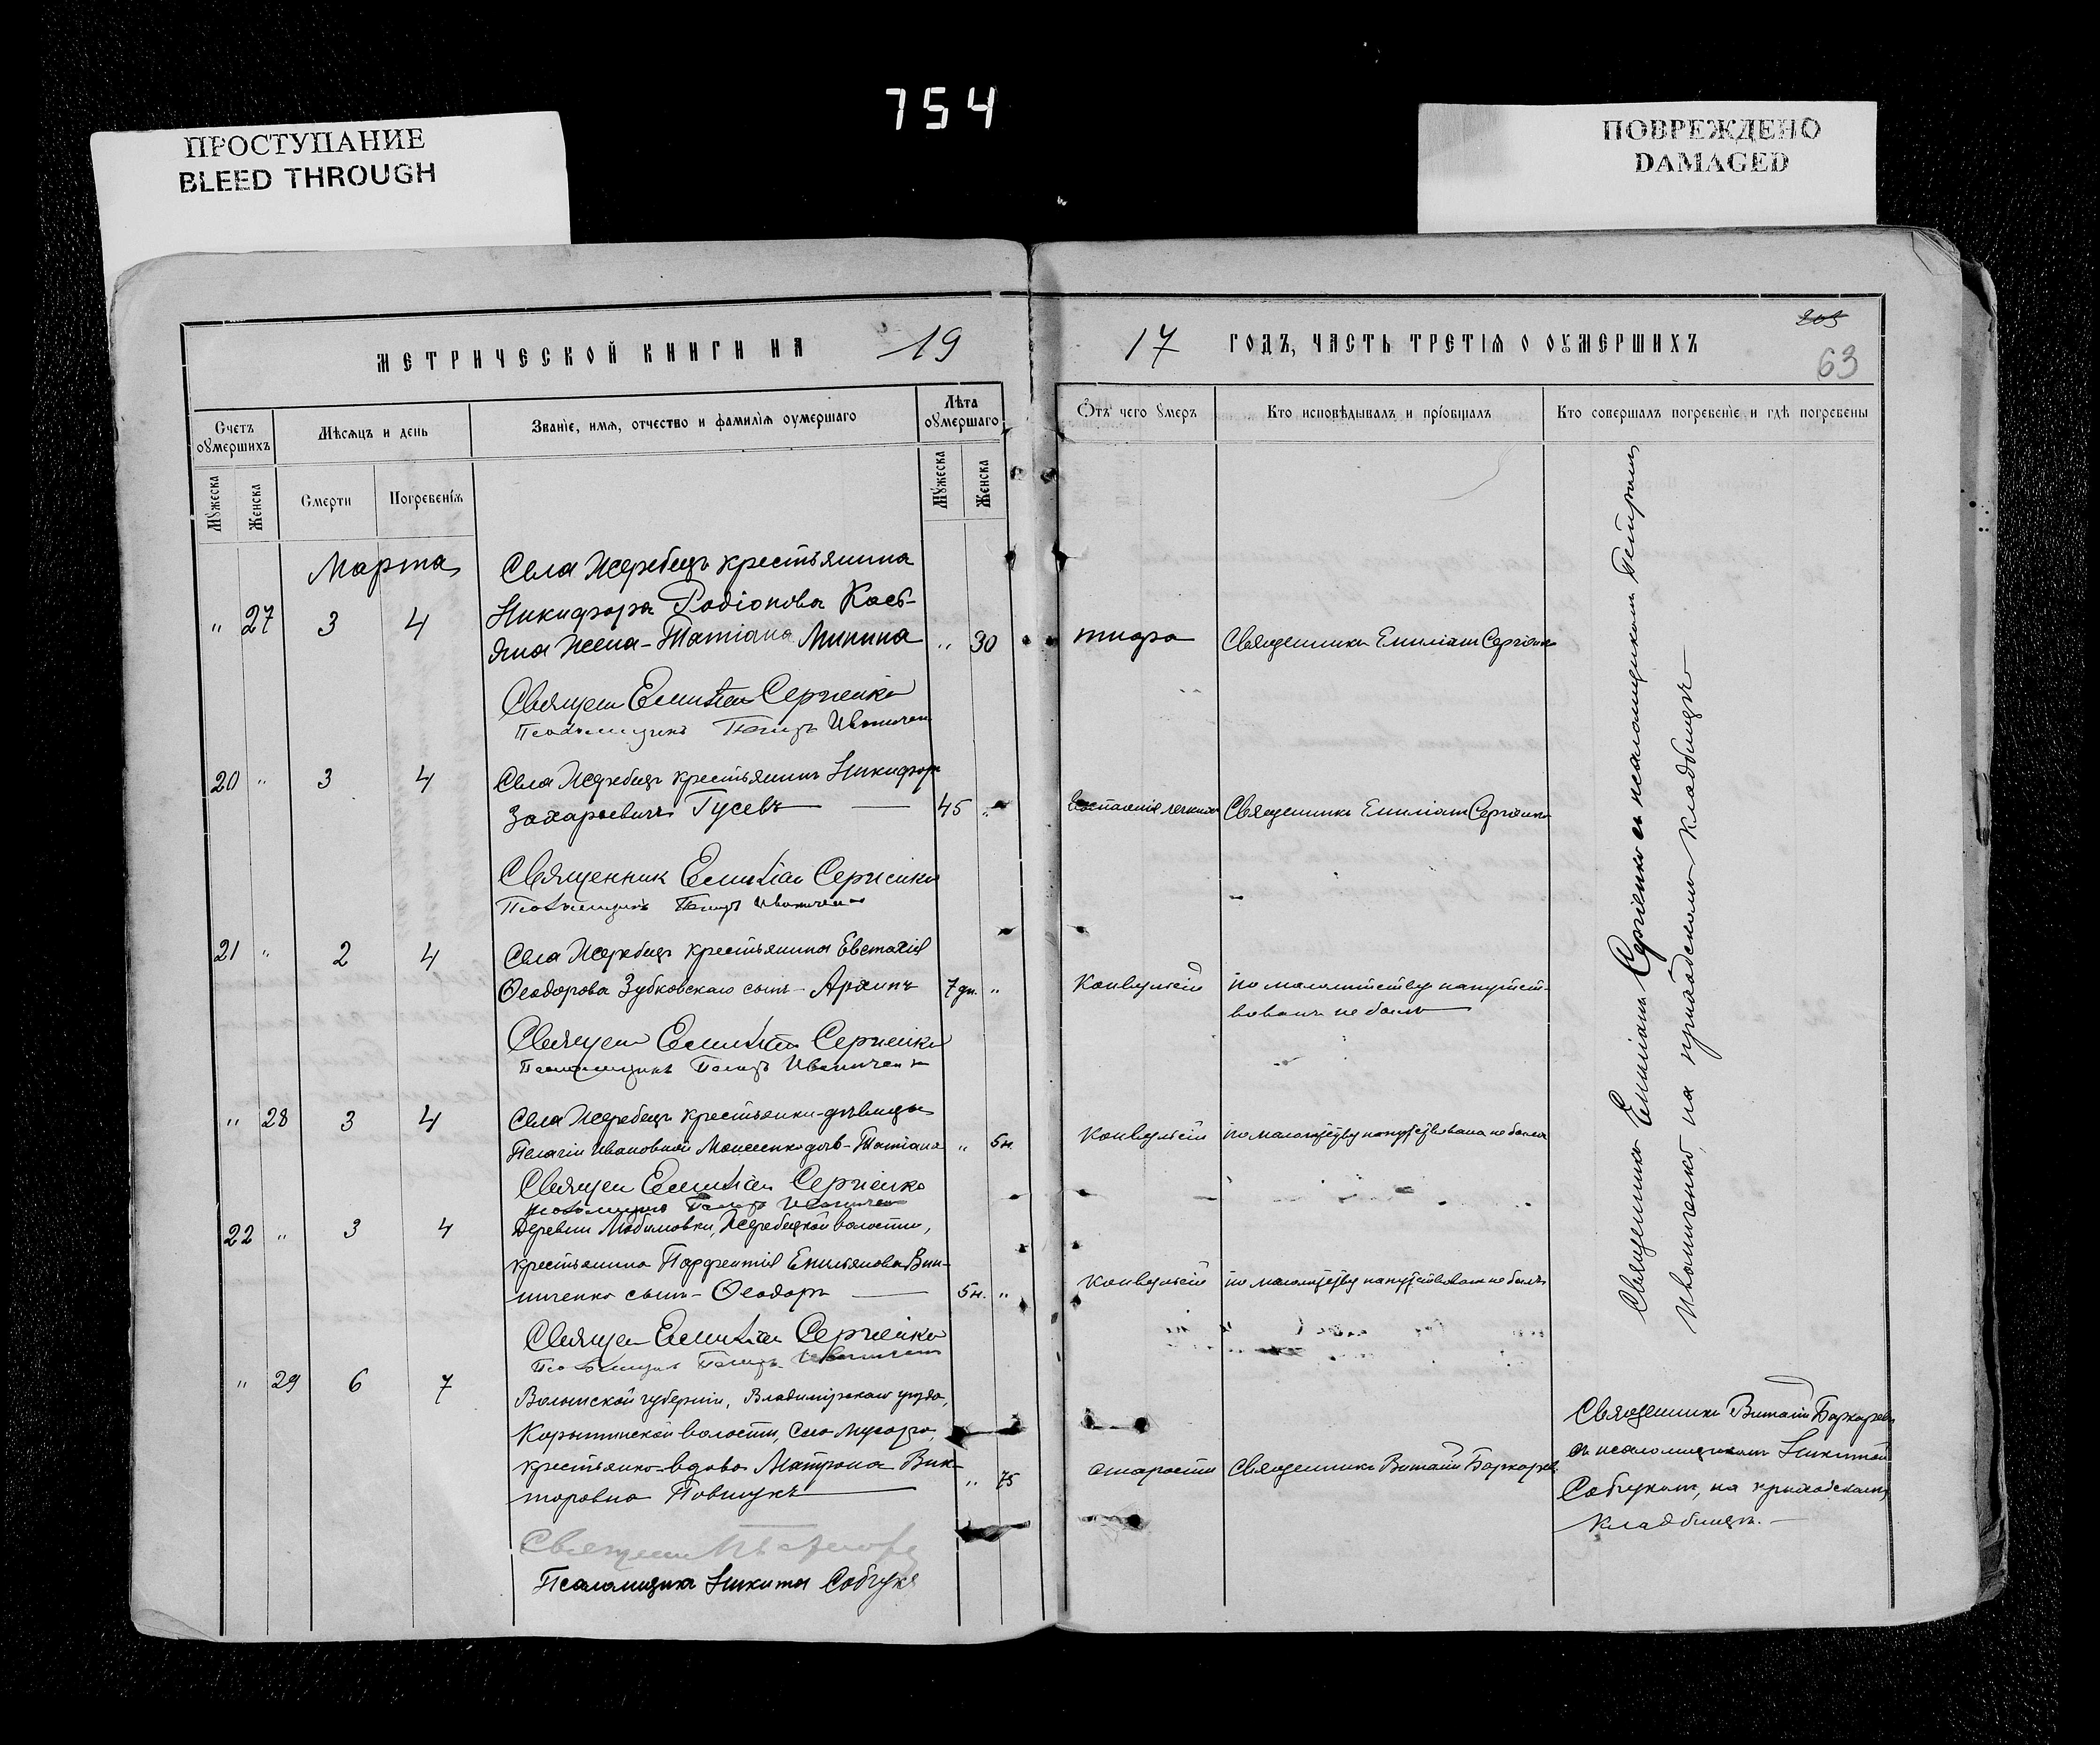 754
ПРОСТУПАНИЕ
BLEED THROUGH
ПОВРЕЖДЕНО
DAMAGED
МЕТРИЧЕСКОЙ КНИГИ НА 19
17 ГОДЪ, ЧАСТЬ ТРЕТІЯ О ОУМЕРШИХЪ
203
63
Счетъ оумершихъ
Мѣсяцъ и день
Званіе, имя, отчество и фамилія оумершаго
Лѣта оумершаго
Мужеска
Женска
Смерти
Погребенія
Мужеска
Женска
Отъ чего умеръ
Кто исповѣдывалъ и пріобщалъ
Кто совершалъ погребеніе и гдѣ погребены
Марта
Села Жеребецъ крестьянина
" 27 3 4 Никифора Родіонова Касъ-
яна жена - Татіана Минина " 30 тифа Священникъ Емиліанъ Сергіенко
Священ Емиліан Сергиенко
Псаломщикъ Петръ Иваниченко
20 " 3 4 Села Жеребецъ крестьянинъ Никифоръ
Захарьевичъ Гусевъ 45 " Воспаленія легкихъ Священникъ Емиліанъ Сергіенко
Священник Емиліан Сергиенко
Псаломщикъ Петръ Иваниченко
21 " 2 4 Села Жеребецъ крестьянина Евстафія
Ѳеодорова Зубковскаго сынъ - Архипъ 7 дн. " Конвульсій по малолѣтству напутст-
вованъ не былъ
Священ Емиліан Сергиенко
Псаломщикъ Петръ Иваниченко
" 28 3 4 Села Жеребецъ крестьянки-дѣвицы
Пелагіи Ивановной дочь - Татіана " 5 н. Конвульсій по малолѣтству напутствована не была
Священ Емиліан Сергиенко
Псаломщикъ Петръ Иваниченко
22 " 3 4 Деревни Любимовки, Жеребецкой волости,
крестьянина Парфентія Емельянова Вин-
ниченко сынъ - Ѳеодоръ 5 н. " Конвульсій по малолѣтству напутствованъ не былъ
Священ Емиліан Сергиенко
Псаломщикъ Петръ Иваниченко
Священникъ Емиліанъ Сергіенко съ псаломщикомъ Петромъ
Иваниченко, на приходскомъ кладбищѣ
" 29 6 7 Волынской губерніи, Владимірскаго уѣзда,
Корытницкой волости, село
крестьянка-вдова Матрона Вик-
торовна " 75 старости Священникъ Виталій
Священникъ Виталій
съ псаломщикомъ Никитой
Собчукомъ, на приходскомъ
кладбищѣ. -
Священ
Псаломщикъ Никита Собчукъ